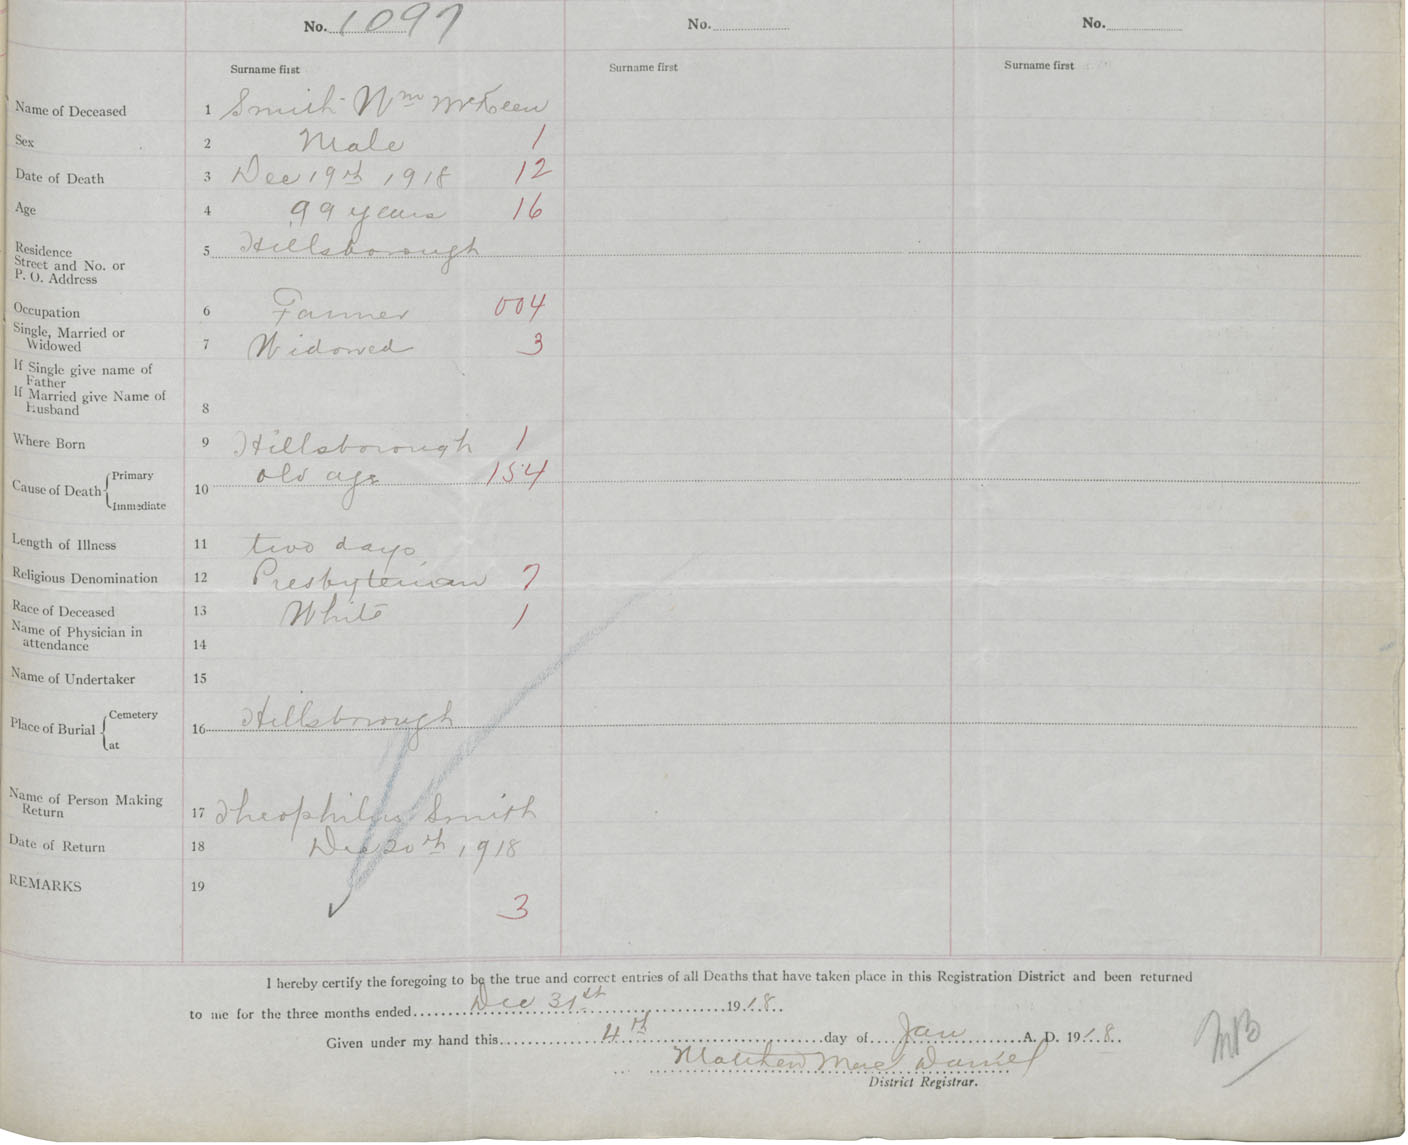 No. 1097 No. No.
Surname first Surname first Surname first
Name of Deceased 1 Smith Wm McKeen
Sex 2 Male 1
Date of Death 3 Dec 19th 1918 12
Age 4 99 years 16
Residence
Street and No. or
P. O. Address 5 Hillsborough
Occupation 6 Farmer 004
Single, Married or
Widowed 7 Widowed 3
If Single give name of
Father
If Married give Name of
Husband 8
Where Born 9 Hillsborough 1
Cause of Death { Primary
Immediate 10 old age 154
Length of Illness 11 two days
Religious Denomination 12 Presbyterian 7
Race of Deceased 13 White 1
Name of Physician in
attendance 14
Name of Undertaker 15
Place of Burial { Cemetery
at 16 Hillsborough
Name of Person Making
Return 17 Theophilus Smith
Date of Return 18 Dec 20th 1918
REMARKS 19
3
I hereby certify the foregoing to be the true and correct entries of all Deaths that have taken place in this Registration District and been returned
to me for the three months ended Dec 31st 1918.
Given under my hand this 4th day of Jan A. D. 1918.
Matthew Mac Daniel
District Registrar.